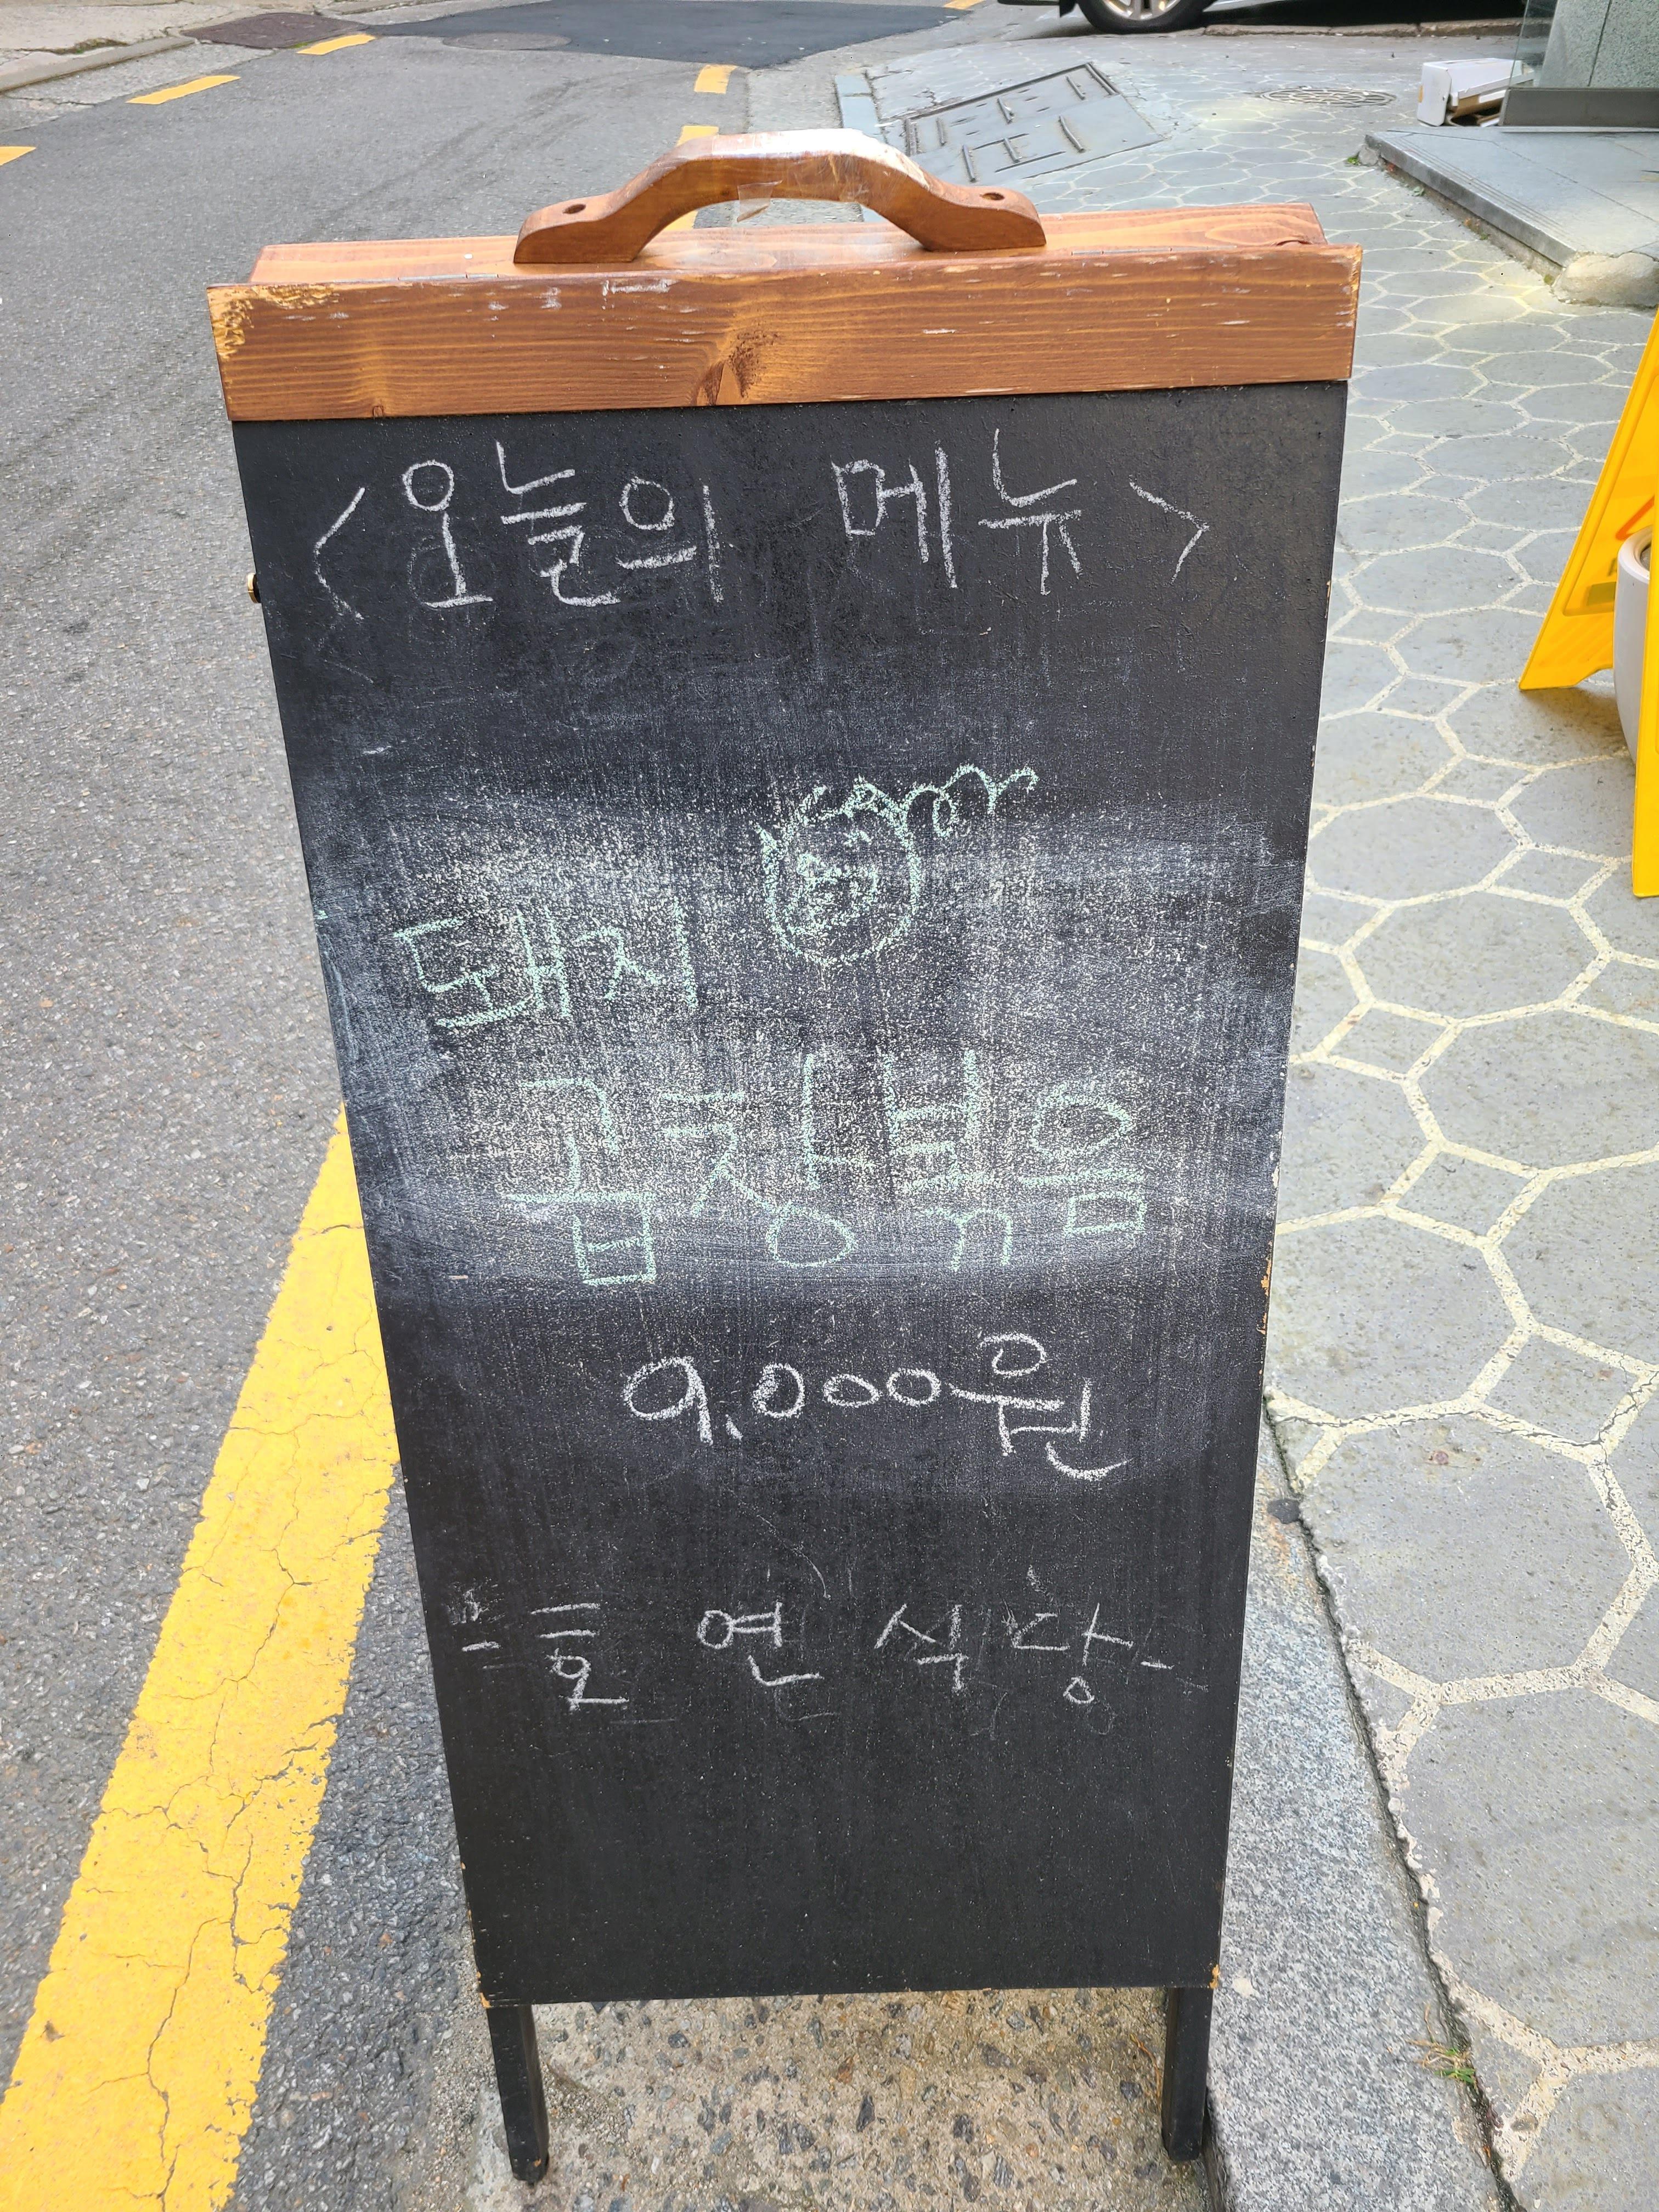 <오늘의 메뉴>
돼지
곱창볶음
9,000원
연 식당-